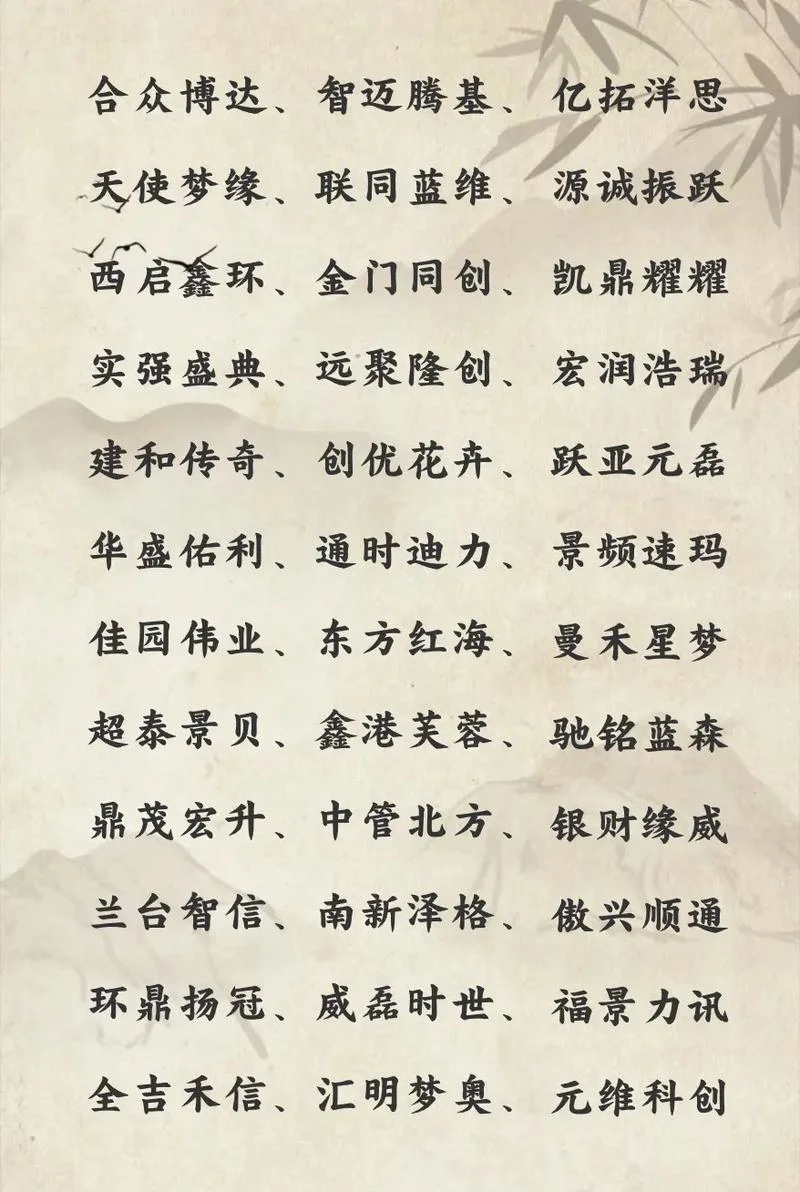 合众博达、智迈腾基、亿拓洋思
天使梦缘、联同蓝维、源诚振跃
西启鑫环、金门同创、凯鼎耀耀
实强盛典、远聚隆创、宏润浩瑞
建和传奇、创优花卉、跃亚元磊
华盛佑利、通时迪力、景频速玛
佳园伟业、东方红海、曼禾星梦
超泰景贝、鑫港芙蓉、驰铭蓝森
鼎茂宏升、中管北方、银财缘威
兰台智信、南新泽格、傲兴顺通
环鼎扬冠、威磊时世、福景力讯
全吉禾信、汇明梦奥、元维科创